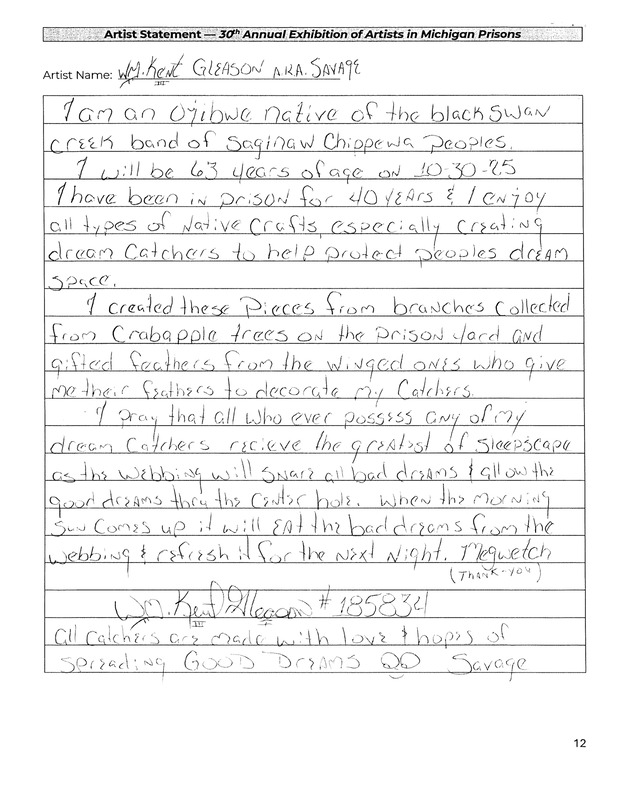 Artist Statement — 30th Annual Exhibition of Artists in Michigan Prisons
Artist Name: WM. Kent GLEASON A.K.A. SAVAGE
III
I am an Ojibwe native of the black swan
creek band of Saginaw Chippewa peoples.
I will be 63 years of age on 10-30-25
I have been in prison for 40 years & I enjoy
all types of Native Crafts, especially creating
dream Catchers to help protect peoples dream
space.
I created these pieces from branches collected
from Crabapple trees on the prison yard and
gifted feathers from the winged ones who give
me their feathers to decorate my Catchers.
I pray that all who ever possess any of my
dream Catchers recieve the greatest of sleepscape
as the webbing will snare all bad dreams & allow the
good dreams thru the center hole. When the morning
sun comes up it will EAT the bad dreams from the
webbing & refresh it for the next night. Megwetch
(THANK-YOU)
WM. Kent Gleason # 185834
III
all catchers are made with love & hopes of
spreading GOOD DREAMS Savage
12